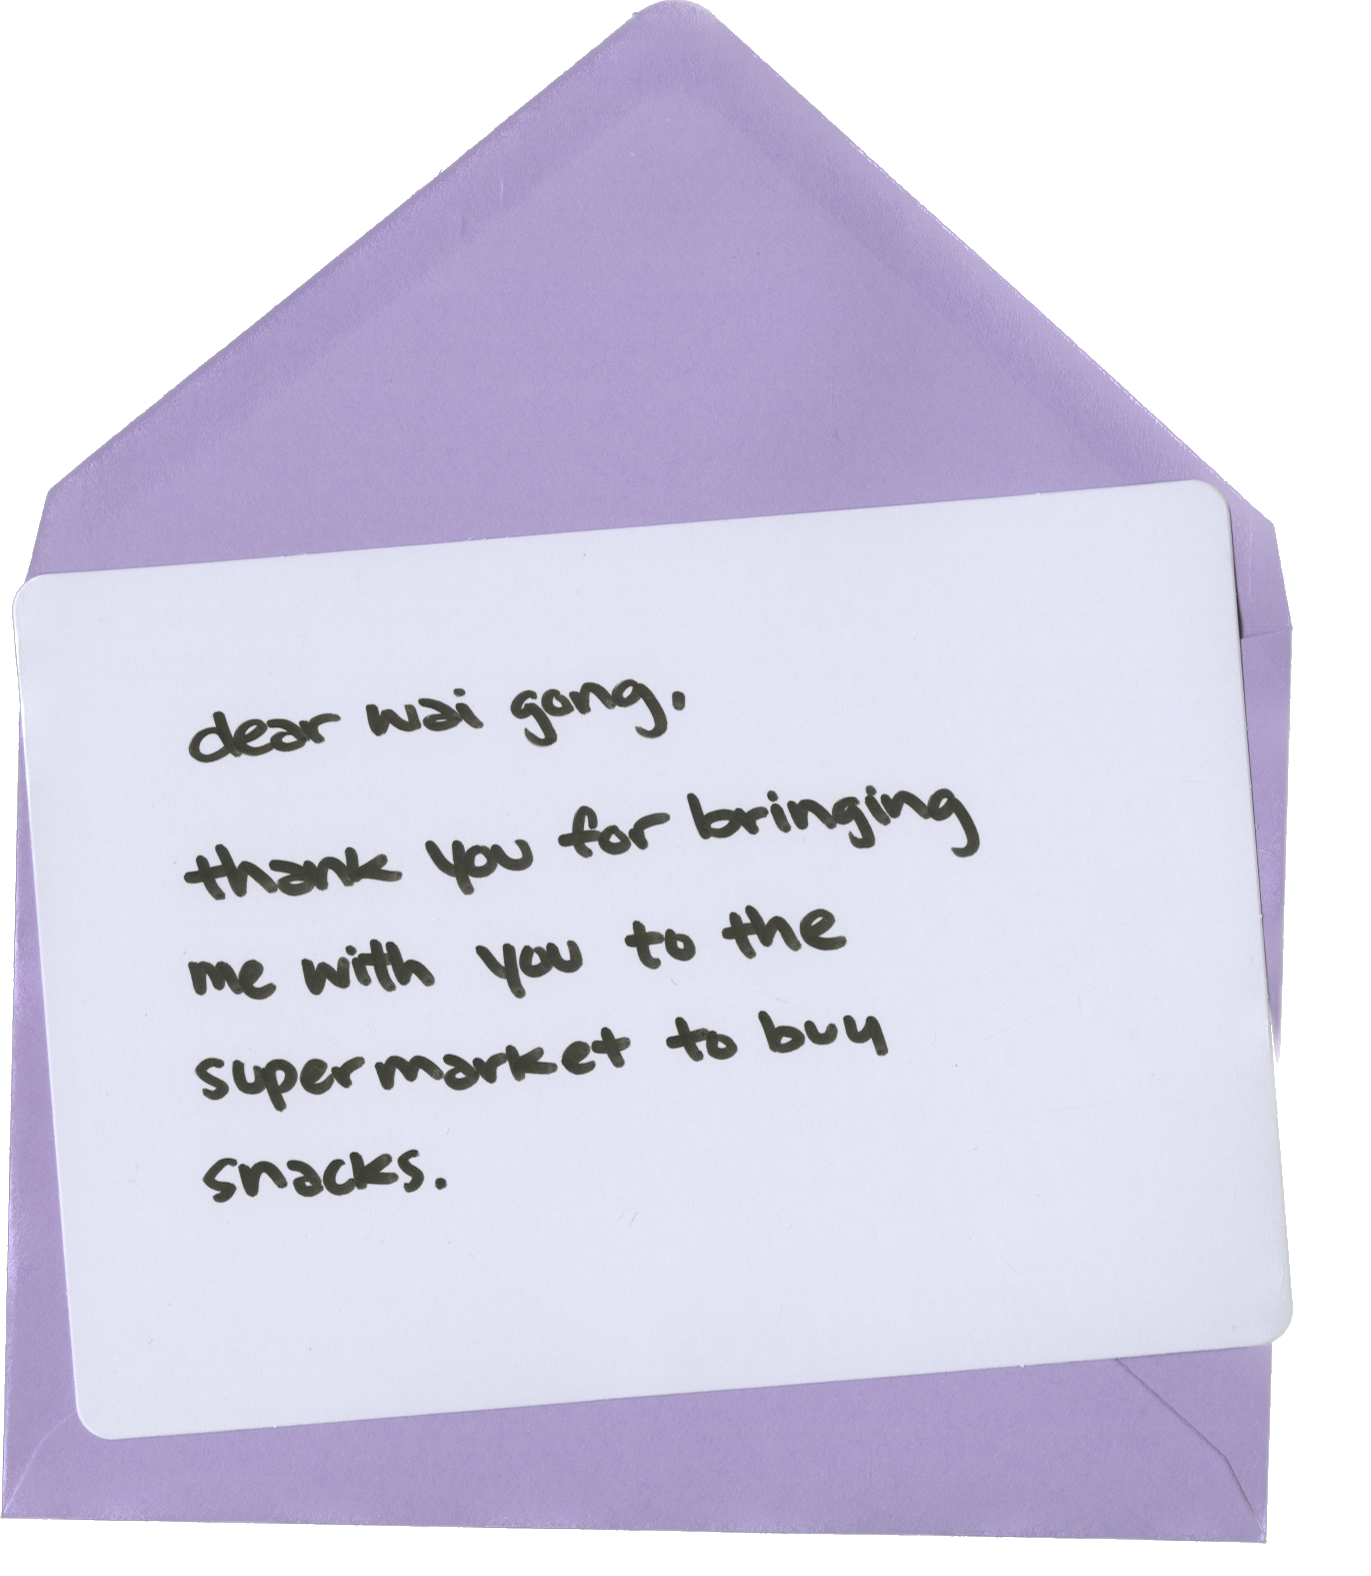 dear wai gong,
thank you for bringing
me with you to the
supermarket to buy
snacks.